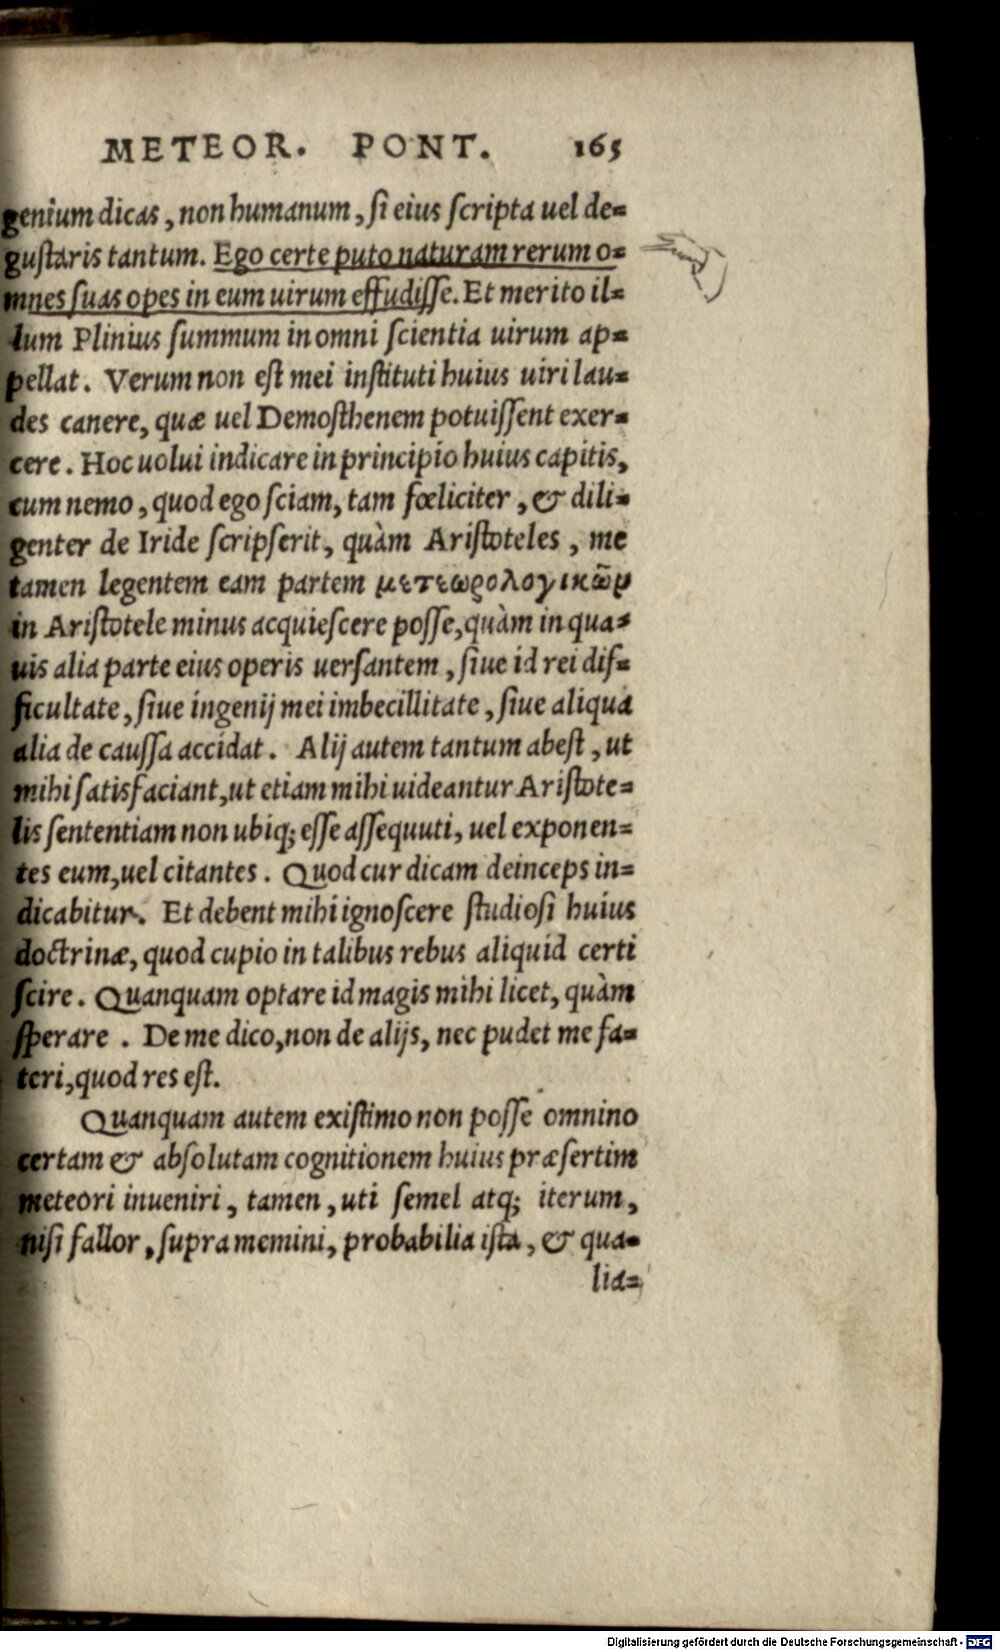 METEOR. PONT. 165
genium dicas, non humanum, ſi eius ſcripta uel de=
guſtaris tantum. Ego certe puto naturam rerum o=
mnes ſuas opes in eum uirum effudiſſe. Et merito il=
lum Plinius ſummum in omni ſcientia uirum ap=
pellat. Verum non eſt mei inſtituti huius uiri lau=
des canere, quæ uel Demoſthenem potuiſſent exer=
cere. Hoc uolui indicare in principio huius capitis,
cum nemo, quod ego ſciam, tam fœliciter, & dili=
genter de Iride ſcripſerit, quàm Ariſtoteles, me
tamen legentem eam partem μετεωρολογικῶν
in Ariſtotele minus acquieſcere poſſe, quàm in qua=
uis alia parte eius operis uerſantem, ſiue id rei dif=
ficultate, ſiue ingenij mei imbecillitate, ſiue aliqua
alia de cauſſa accidat. Alij autem tantum abeſt, ut
mihi ſatisfaciant, ut etiam mihi uideantur Ariſtote=
lis ſententiam non ubiq; eſſe aſſequuti, uel exponen=
tes eum, uel citantes. Quod cur dicam deinceps in=
dicabitur. Et debent mihi ignoſcere ſtudioſi huius
doctrinæ, quod cupio in talibus rebus aliquid certi
ſcire. Quanquam optare id magis mihi licet, quàm
ſperare. De me dico, non de alijs, nec pudet me fa=
teri, quod res eſt.
Quanquam autem exiſtimo non poſſe omnino
certam & abſolutam cognitionem huius præſertim
meteori inueniri, tamen, uti ſemel atq; iterum,
niſi fallor, ſupra memini, probabilia iſta, & qua=
lia=
Digitalisierung gefördert durch die Deutsche Forschungsgemeinschaft - DFG